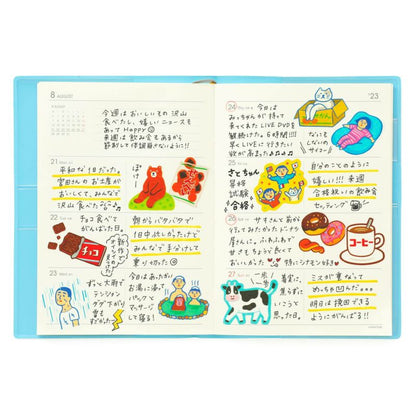 8 AUGUST
今週はおいしいもの沢山
食べたし、嬉しいニュースも
あってHappy
来週は飲み会もあるから
節制して体調崩さないように!!
21
平和な1日だった。
宮田さんのお土産が
おいしくて、みんなで
沢山食べた
ぼけー
22
チョコ食べて
がんばった日。
チョコ
新作で
オイシイ
朝からバタバタで
1日中忙しかったけど
みんなで手分けして
乗り切った
23
ずっと大雨で
テンション
ダダ下がり
雷も
すごかった
今日はあったかい
お湯に浸って
パックと
マッサージ
して寝る
'23
24
今日は
みっちゃんが持って
来てくれたLIVE DVDを
観続けた。6時間!!!
早くLIVEに行きたい
欲が高まった
なにもし
ないもの
サイコー
25
さとちゃん
昇格
試験
合格
自分のことのように
嬉しい!!! 来週
合格祝いの飲み会
セッティング
26
サオさんてあが
行ってみたかったドーナツ
屋さんに。ふわふわで
甘すぎなくて
おいしかった
特にシナモン好き
コーヒー
27
一歩
着実に、
焦らずに
いこうと
思った日。
ミスが重なって
めっちゃ凹んだ...
明日は挽回できる
ようにがんばる!!